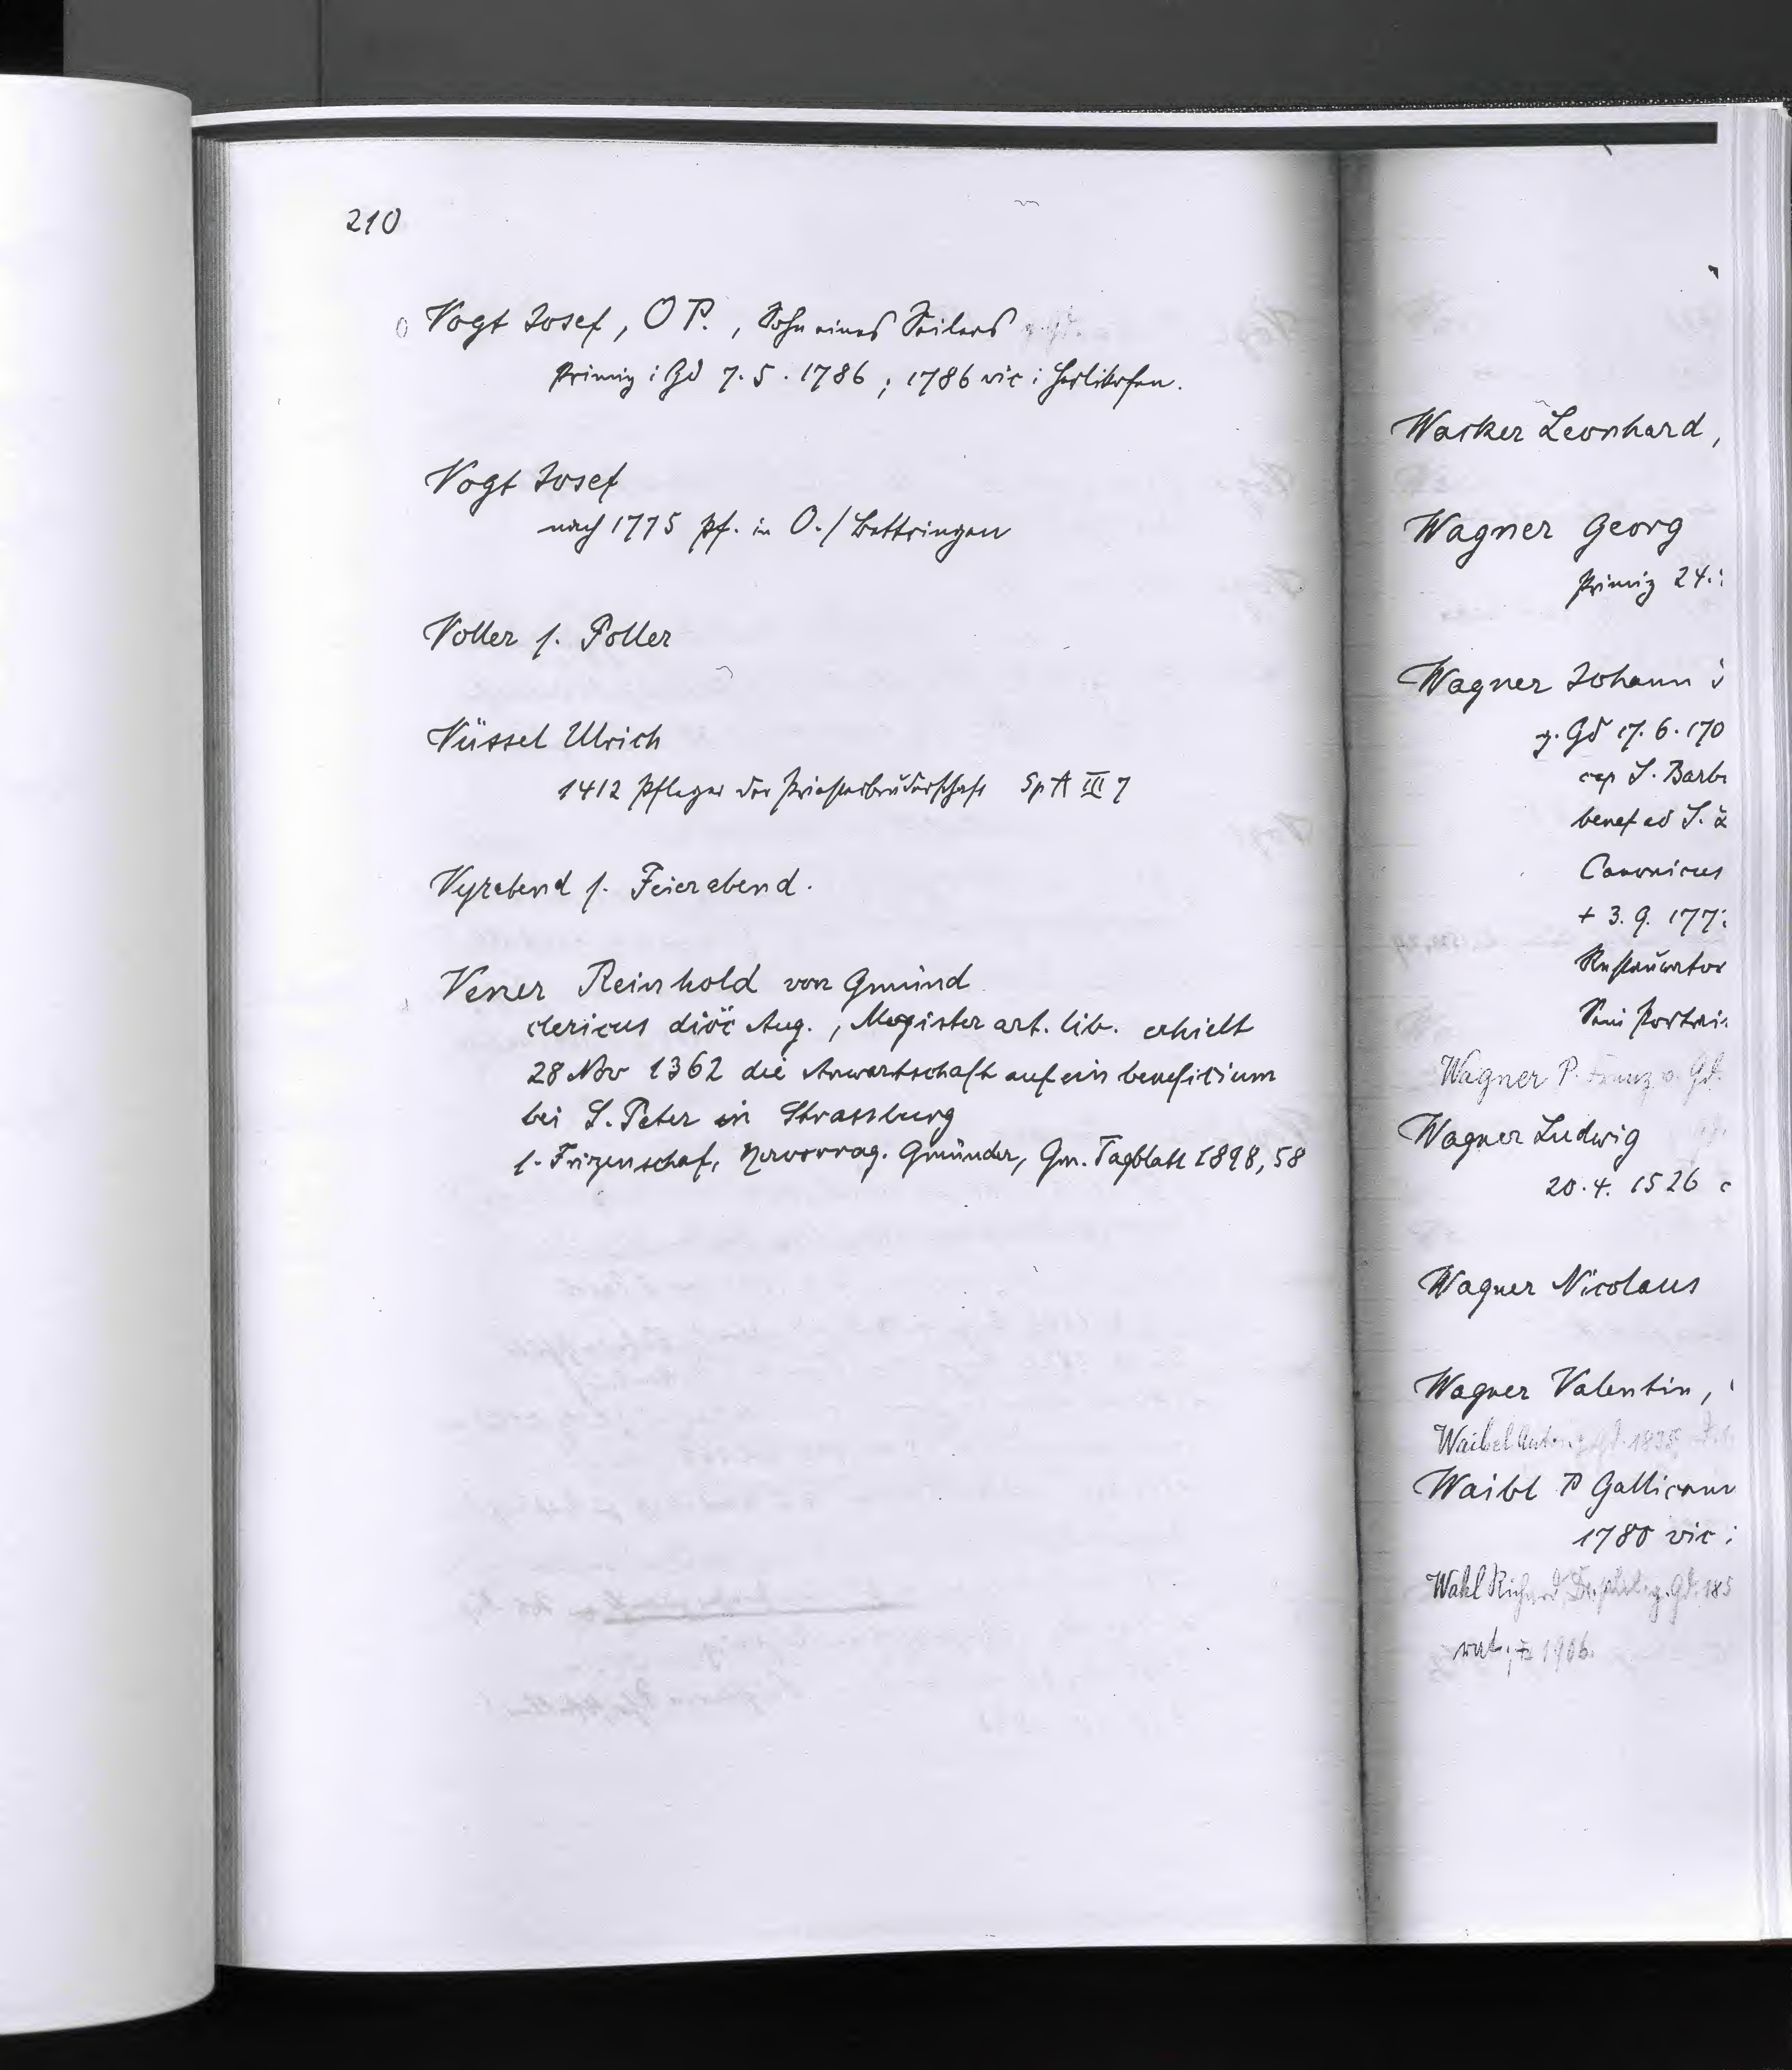 210
Vogt Josef, O P., Sohn eines Seilers z. Gd.
Primiz i Gd 7.5.1786; 1786 vic i Herlikofen.
Vogt Josef
nach 1775 Pf. in O./Bettringen
Voller s. Foller
Vüssel Ulrich
1412 Pfleger der Priesterbruderschaft Sp A III 7
Vyrabend s. Feierabend.
Vener Reinhold von Gmünd
clericus diöc Aug., Magister art. lib. erhielt
28 Nov 1362 die Anwartschaft auf ein beneficium
bei S. Peter in Strassburg
s. Frizenschaf, Hervorrag. Gmünder, Gm. Tagblatt 1898, 58
Wacker Leonhard,
Wagner Georg
Primiz 24.
Wagner Johann
z. Gd 17.6.170
cap S. Barb
benef ad S.
Canonicus
+ 3.9.177
Restaurator
Sein Portrai
Wagner P. Franz v. Gd.
Wagner Ludwig
20.4.1526
Wagner Nicolaus
Wagner Valentin,
Waibel Anton z. Gd. 1835
Waibl P Gallican
1780 vic
Wahl Richard, Dr. phil. z. Gd. 185
1906.